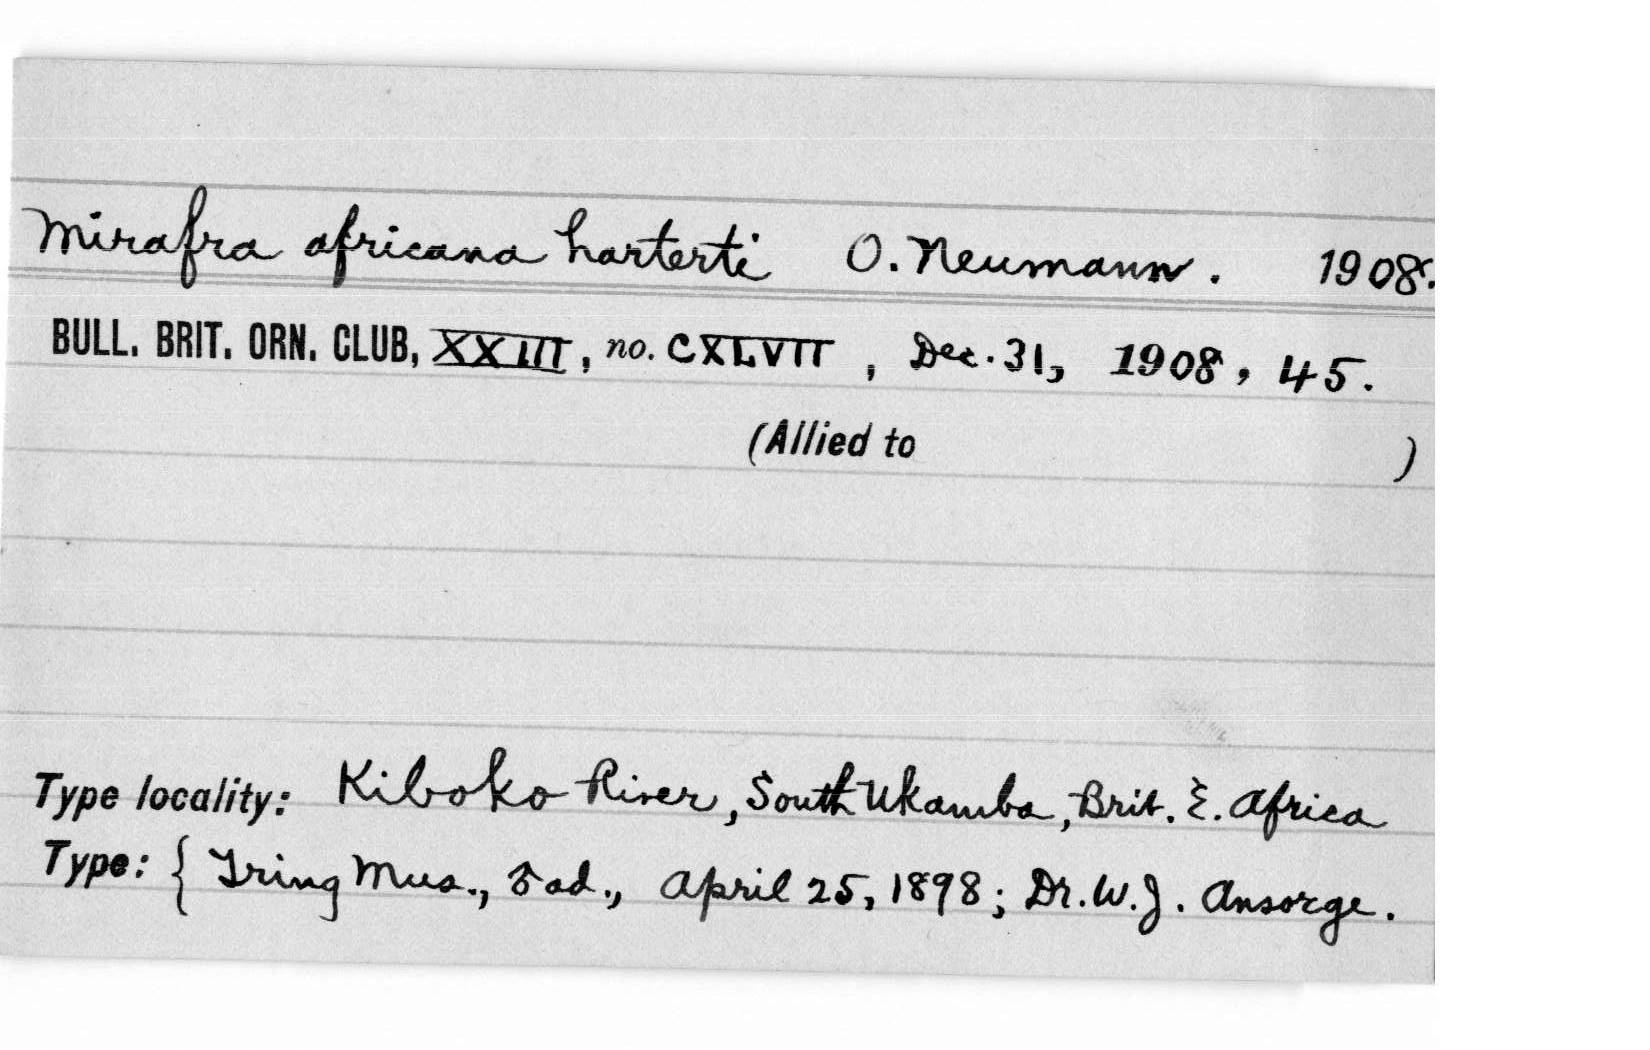 Mirafra africana harterti O. Neumann. 1908.
BULL. BRIT. ORN. CLUB, XXIII, no. CXLVII, Dec. 31, 1908, 45.
(Allied to )
Type locality: Kiboko River, South Ukamba, Brit. E. Africa
Type: { Tring Mus., ♂ ad., April 25, 1898; Dr. W. J. Ansorge.